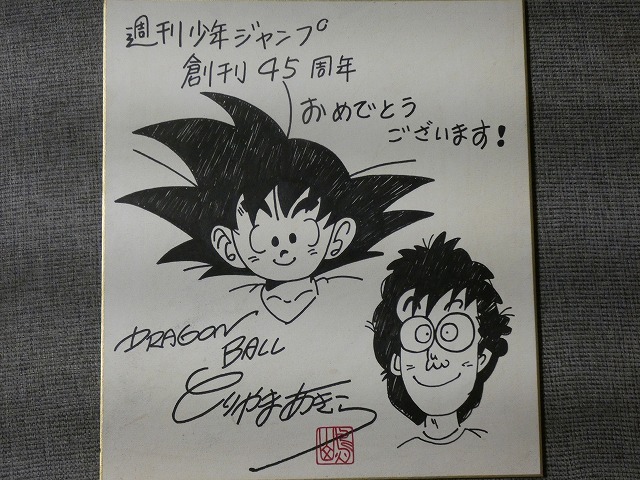 週刊少年ジャンプ
創刊45周年
おめでとう
ございます!
DRAGON
BALL
とりやまあきら